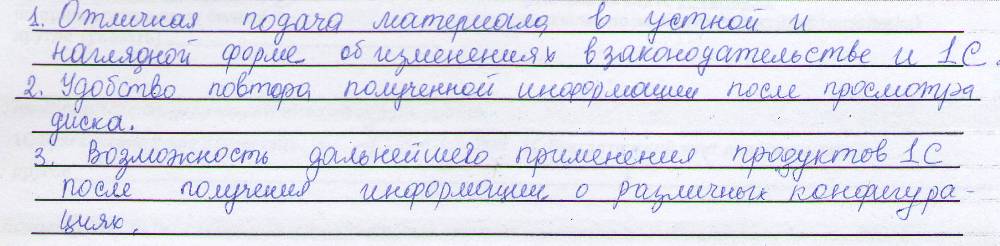 1. Отличная подача материала, в устной и
наглядной форме об изменениях в законодательстве и 1С.
2. Удобство повтора полученной информации после просмотра
диска.
3. Возможность дальнейшего применения продуктов 1С
после получения информации о различных конфигура-
циях.